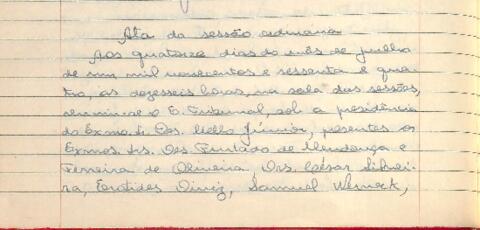 Ata da sessão ordinária
Aos quatorze dias do mês de julho
de um mil novecentos e sessenta e qua-
tro, às dezesseis horas, na sala das sessões,
reuniu-se o E. Tribunal, sob a presidência
do Exmo. Sr. Des. Mello Júnior, presentes os
Exmos. Srs. Des. Furtado de Mendonça e
Ferreira de Oliveira, Drs. César Silvei-
ra, Erotides Diniz, Samuel Werneck,